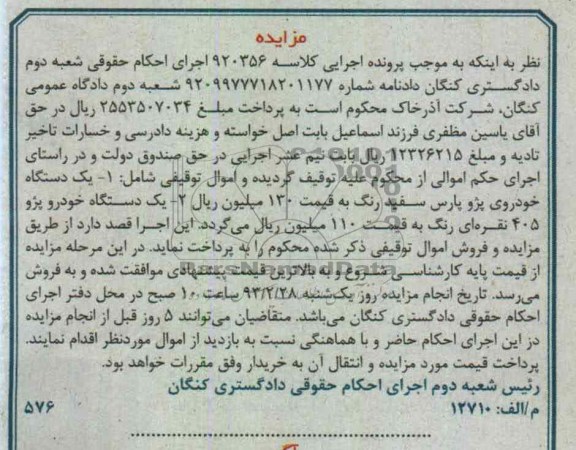 مزایده
نظر به اینکه به موجب پرونده اجرایی کلاسه ۹۲۰۳۵۶ اجرای احکام حقوقی شعبه دوم
دادگستری کنگان دادنامه شماره ۹۲۰۹۹۷۷۷۱۸۲۰۱۱۷۷ شعبه دوم دادگاه عمومی
کنگان، شرکت آذرخاک محکوم است به پرداخت مبلغ ۲۵۵۳۵۰۷۰۳۴ ریال در حق
آقای یاسین مظفری فرزند اسماعیل بابت اصل خواسته و هزینه دادرسی و خسارات تاخیر
تادیه و مبلغ ۱۲۳۲۶۲۱۵ ریال بابت نیم عشر اجرایی در حق صندوق دولت و در راستای
اجرای حکم اموالی از محکوم علیه توقیف گردیده و اموال توقیفی شامل: ۱- یک دستگاه
خودروی پژو پارس سفید رنگ به قیمت ۱۳۰ میلیون ریال ۲- یک دستگاه خودرو پژو
۴۰۵ نقره‌ای رنگ به قیمت ۱۱۰ میلیون ریال می‌گردد. این اجرا قصد دارد از طریق
مزایده و فروش اموال توقیفی ذکر شده محکوم را به پرداخت نماید. در این مرحله مزایده
از قیمت پایه کارشناسی شروع و به بالاترین قیمت پیشنهادی موافقت شده و به فروش
می‌رسد. تاریخ انجام مزایده روز یکشنبه ۹۳/۲/۲۸ ساعت ۱۰ صبح در محل دفتر اجرای
احکام حقوقی دادگستری کنگان می‌باشد. متقاضیان می‌توانند ۵ روز قبل از انجام مزایده
در این اجرای احکام حاضر و با هماهنگی نسبت به بازدید از اموال موردنظر اقدام نمایند.
پرداخت قیمت مورد مزایده و انتقال آن به خریدار وفق مقررات خواهد بود.
رئیس شعبه دوم اجرای احکام حقوقی دادگستری کنگان
م/الف: ۱۲۷۱۰ ۵۷۶